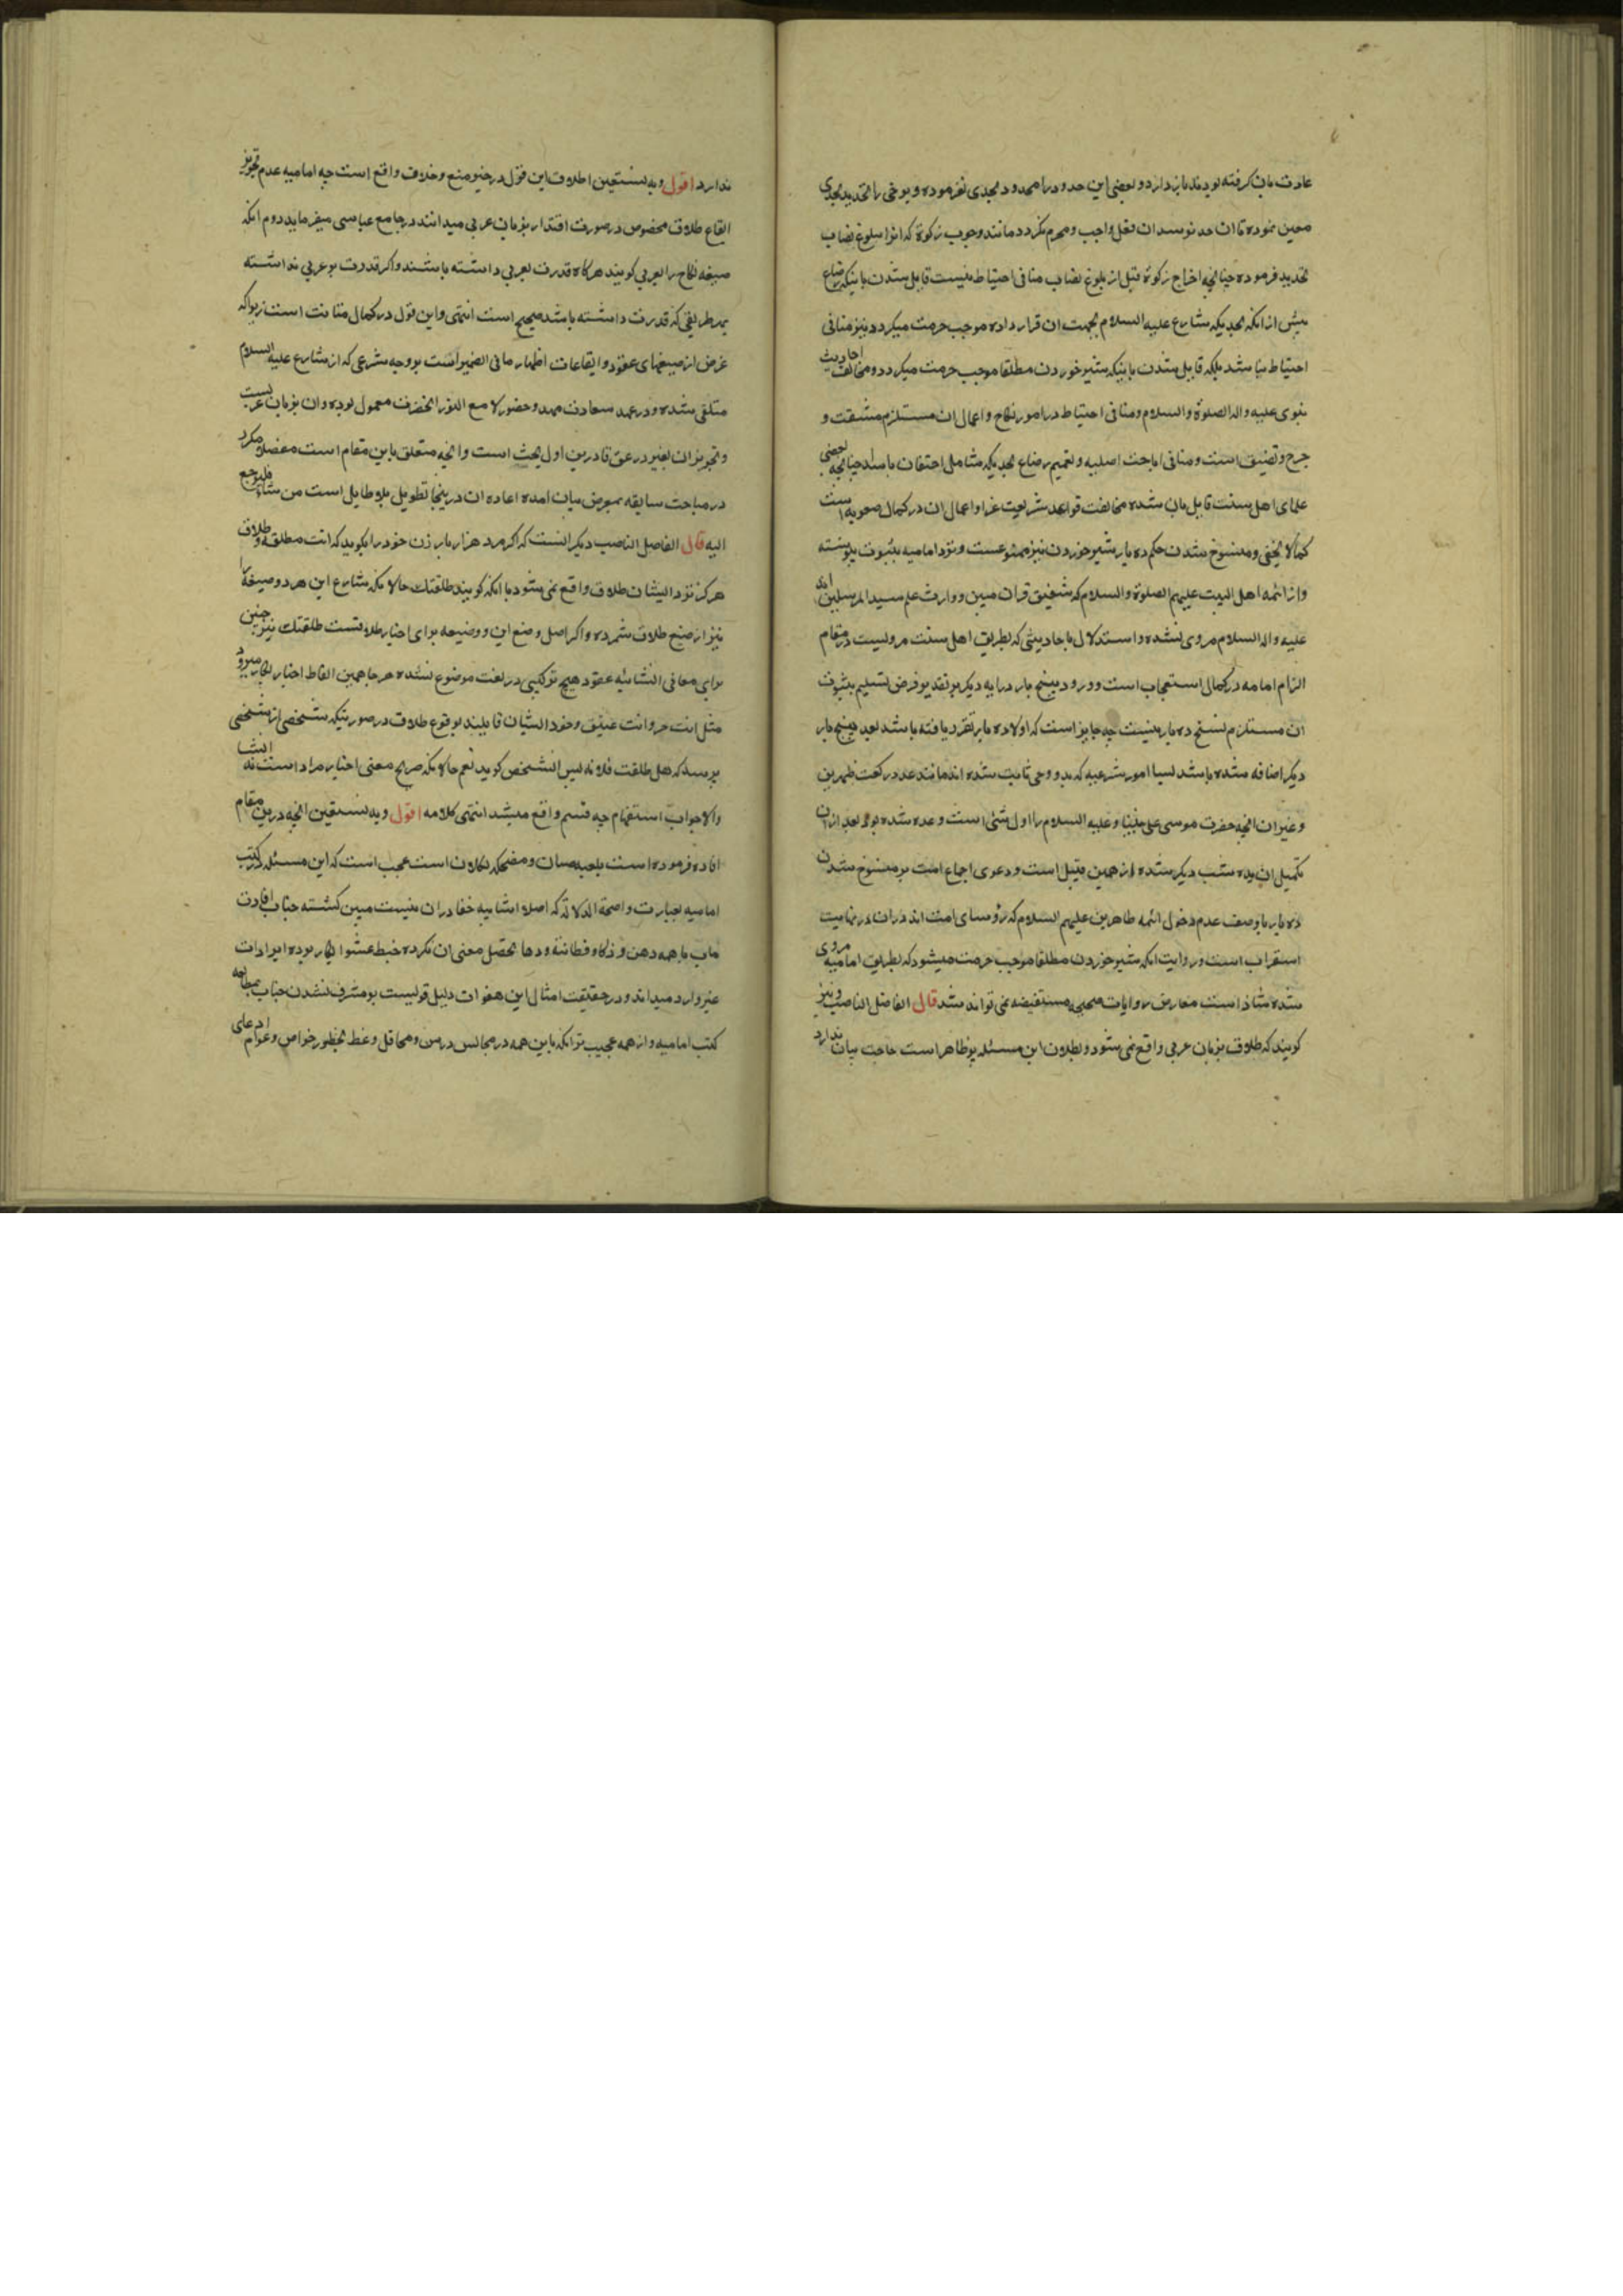 عادت بان گرفته بودند باز دارد و بعضی این حدود را محدود بحدی نفرموده و برخی را تحدید بحدی
معین نموده تا ان حد نرسد ان فعل واجب و محرم نگردد مانند وجوب زکوة که انرا ببلوغ نصاب
تحدید فرموده چنانچه اخراج زکوة قبل از بلوغ نصاب منافی احتیاط نیست قایل شدن باینکه رضاع
پیش از انکه بحدیکه شارع علیه السلام بجهت ان قرار داده موجب حرمت میگردد نیز منافی
احتیاط نباشد بلکه قایل شدن باینکه شیر خوردن مطلقا موجب حرمت میگردد و مخالفت احادیث
نبوی علیه واله الصلوة والسلام و منافی احتیاط در امور نکاح و اعمال ان مستلزم مشقت و
حرج و تضییق است و منافی اباحت اصلیه و تعمیم رضاع بحدیکه شامل احتقان باشد چنانچه بعضی
علمای اهل سنت قایل بان شده مخالفت قواعد شریعت غرا و اعمال ان در کمال صعوبه است
کمالا یخفی و منسوخ شدن حکم ده بار شیر خوردن نیز ممنوعست و نزد امامیه بثبوت نپیوسته
و از ائمه اهل البیت علیهم الصلوة والسلام که شفیق قران مبین و وارث علم سید المرسلین اند
علیه واله السلام مروی نشده و استدلال باحادیثی که بطریق اهل سنت مرویست در مقام
الزام امامیه در کمال استعجاب است و ورود پنج بار در ایه دیگر بر تقدیر فرض تسلیم بثبوت
ان مستلزم نسخ ده بار نیست چه جایز است که اولا ده بار تقرر یافته باشد بعد پنج بار
دیگر اضافه شده باشد لسیا امور شرعیه که بدو وحی ثابت شده اند مانند عدد رکعت ظهرین
و غیر ان انچه حضرت موسی علی نبینا و علیه السلام را اول شئی است وعده شده بود بعد ازان
تکمیل ان بده شب دیگر شده از همین قبیل است و دعوی اجماع امت بر منسوخ شدن
ده بار با وصف عدم دخول ائمه طاهرین علیهم السلام که رؤسای امت اند دران در نهایت
استغراب است و روایت انکه شیر خوردن مطلقا موجب حرمت میشود که بطریق امامیه مروی
شده شاذ است معارض روایات صحیحه مستفیضه نمی تواند شد قال الفاضل الناصب و نیز
گویند که طلاق بزبان عربی واقع نمی شود و بطلان این مسئله پر ظاهر است حاجت بیان ندارد
ندارد اقول وبه نستعین اطلاق این قول در حیز منع و خلاف واقع است چه امامیه عدم تجویز
ایقاع طلاق مخصوص در صورت اقتدار بزبان عربی میدانند در جامع عباسی میفرماید دوم انکه
صیغه نکاح را بعربی گویند هرگاه قدرت بعربی داشته باشند و اگر قدرت بر عربی نداشته
بهر طریقی که قدرت داشته باشد صحیح است انتهی و این قول در کمال متانت است زیراکه
غرض از صیغهای عقود و ایقاعات اظهار ما فی الضمیر است بر وجه شرعی که از شارع علیه السلام
متلقی شده و در عهد سعادت مهد و حضور لامع النور انحضرت معمول بوده وان بزبان عربست
و تجویز ان بغیر در حق قادرین اول بحث است و انچه متعلق باین مقام است مفصلا مکرر
در مباحث سابقه بمعرض بیان امده اعاده ان درینجا تطویل بلا طایل است من شاء فلیرجع
الیه قال الفاضل الناصب دیگر انست که اگر مرد هزار بار زن خود را بگوید که انت مطلقة و طلاق
هرگز نزد ایشان طلاق واقع نمی شود با انکه گویند طلقتك حالانکه شارع این هر دو صیغه را
نیز از صیغ طلاق شمرده و اگر اصل وضع این دو صیغه برای اخبار طلاقست طلقتك نیز چنین
برای معانی انشائیه عقود هیچ ترکیبی در لغت موضوع نشده هر جا همین الفاظ اخبار بکار میرود
مثل انت حر و انت عتیق و خود ایشان قایلند بوقوع طلاق در صورتیکه شخصی از شخصی
پرسد که هل طلقت فلانة پس انشخص گوید نعم حالانکه صریح معنی اخبار مراد است نه انشا
والا جواب استفهام چه قسم واقع میشد انتهی کلامه اقول وبه نستعین انچه درین مقام
افاده فرموده است ملعبه صبیان و مضحکه ثکلان است عجب است که این مسئله در کتب
امامیه بعبارت واضحة الدلالة که اصلا شایبه خفا دران نیست مبین گشته جناب افادت
ماب با همه ذهن و ذکاء و فطانت و دها تحصل معنی ان نکرده خبط عشوا بکار برده ایرادات
غیر وارد میداند و در حقیقت امثال این هفوات دلیل قویست بر مشرف نشدن جناب بمطالعه
کتب امامیه و از همه عجیب تر انکه باین همه در مجالس درس و محافل وعظ بحضور خواص و عوام ادعای